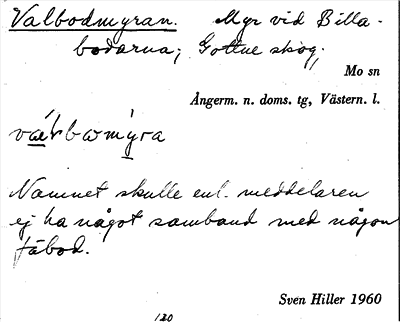 Valbodmyran. Myr vid Billa-
bodarna; Gottne skog,
Mo sn
Ångerm. n. doms. tg, Västern. l.
Namnet skulle enl. meddelaren
ej ha något samband med någon
fäbod.
Sven Hiller 1960
120